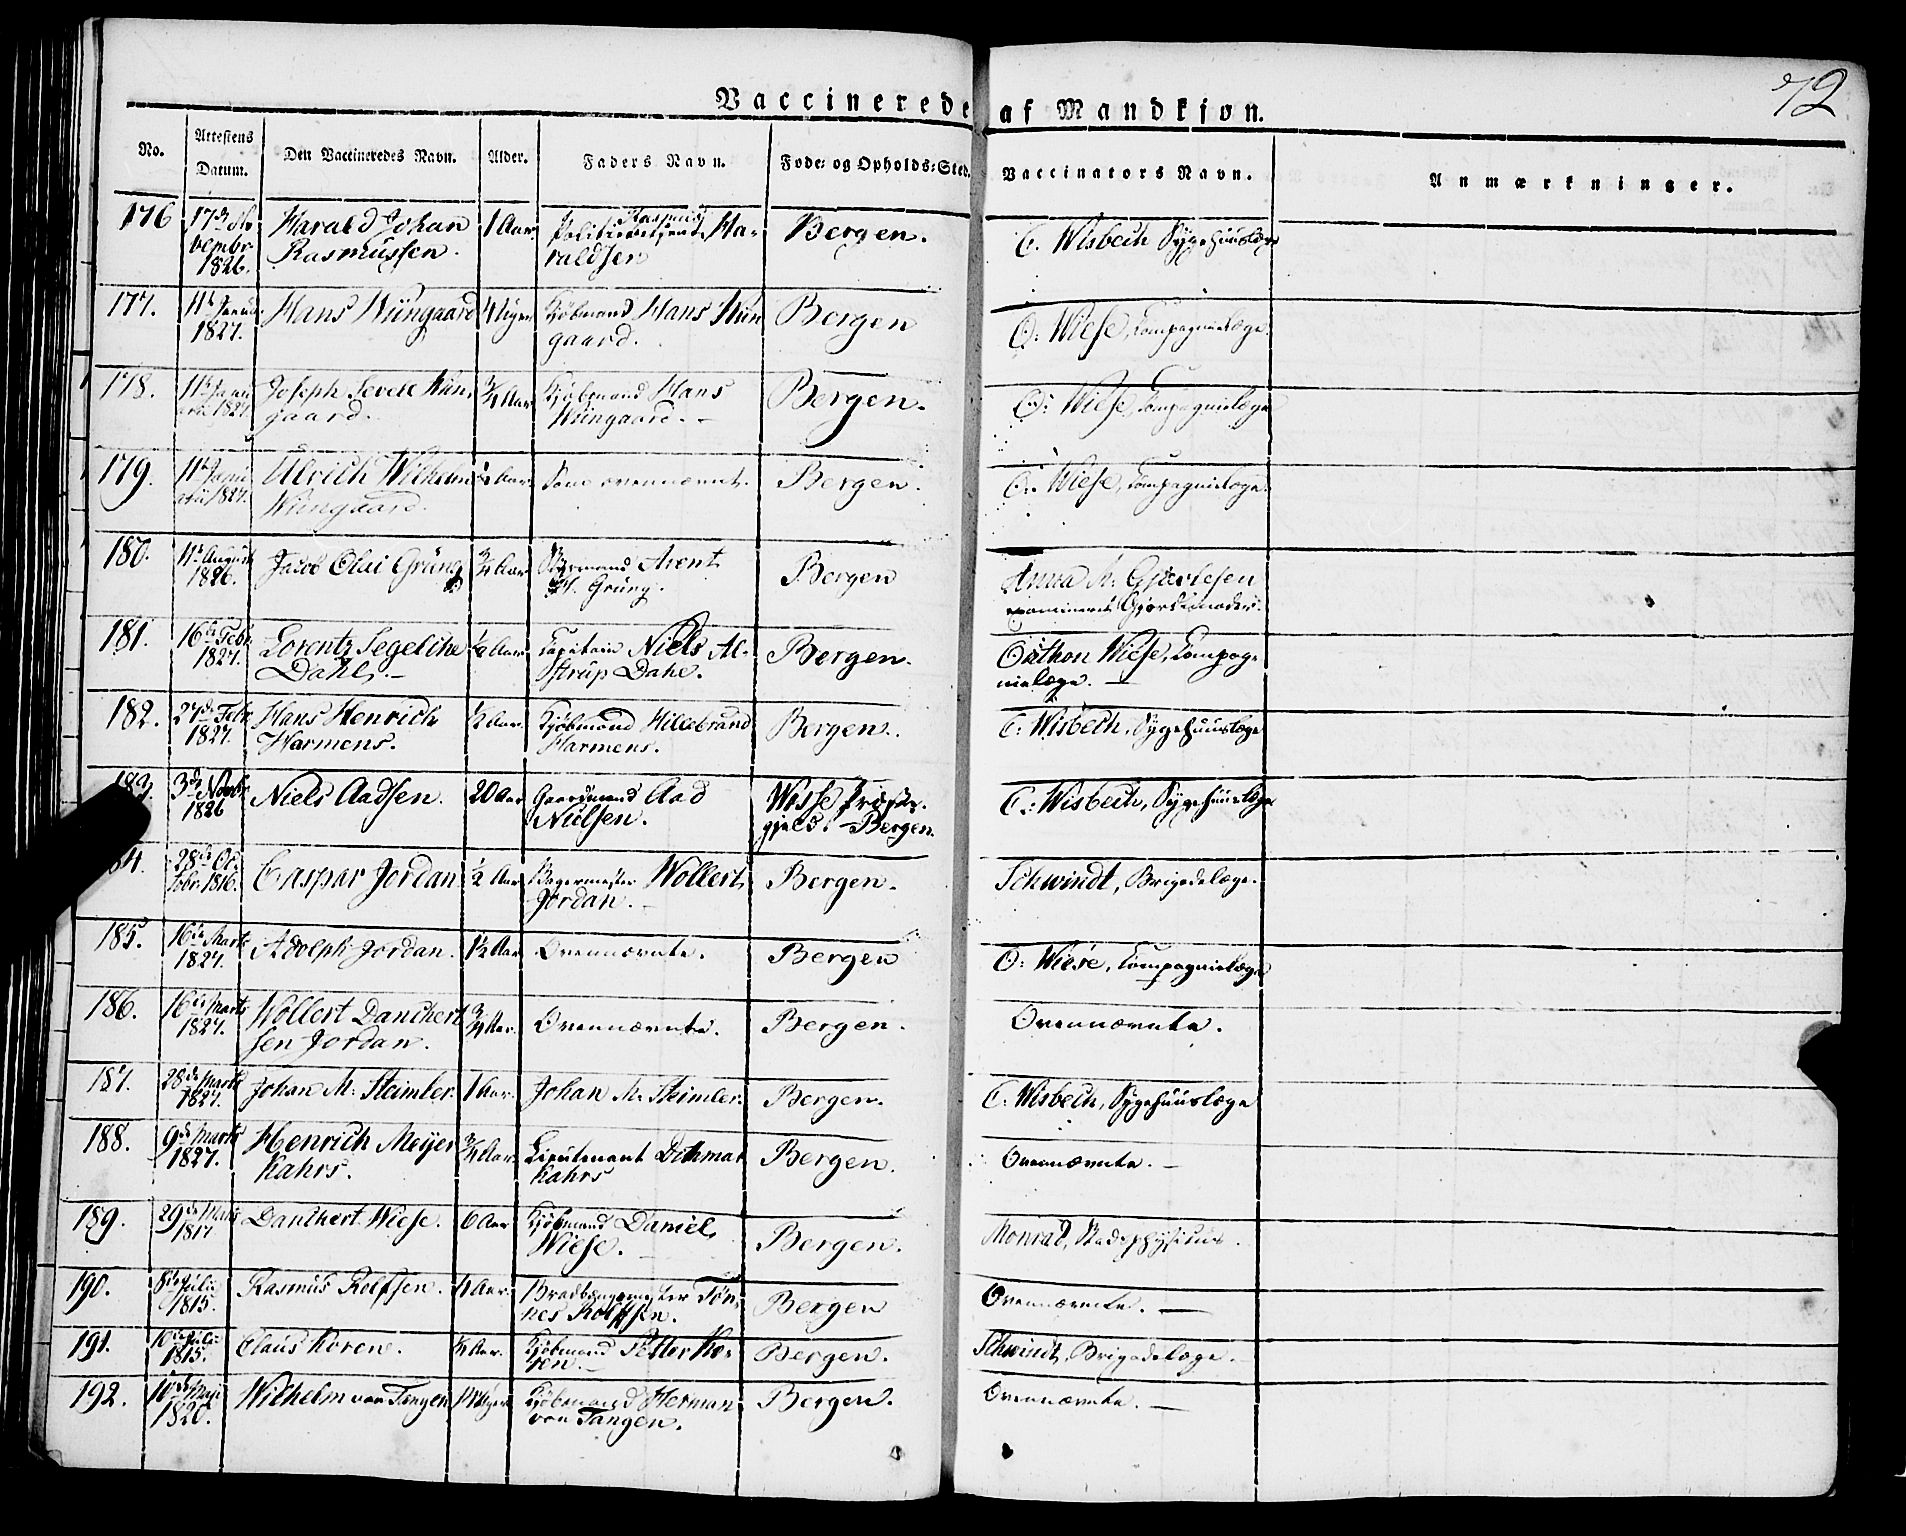 72
Vaccinerede af Mandkjøn.
No.
Attestens Datum.
Den Vaccineredes Navn.
Alder.
Faders Navn.
Føde= og Opholds=Sted.
Vaccinators Navn.
Anmærkninger.
176 17de No- Harald Johan 1 Aar. Politiebetjent Rasmus Ha- Bergen. C. Wisbech Sygehuuslæge
vembr Rasmussen. raldsen
1826.
177. 11te Januar Hans Wiingaard Kjøbmand Hans Wiin Bergen O: Wiese, Compagnielæge.
1827. gaard.
178. 11te Janu Joseph Wiin, 3/4 Aar Kjøbmand Hans Bergen. O: Wiese, Compagnielæge
arii 1827. gaard. Wiingaard. –
179. 11te Janu Ulrich Wilhelm Aar. Som ovennævnt. Bergen. O: Wiese, Compagnielæge.
arii 1827. Wiingaard.
180. 11te August Jacob Olai Grüng 3/4 Aar Arent Bergen Anna M: Gjertsen
1826. Grüng. examineret Gjordemoder.
181. 16de Febr. Lorentz Segelcke 1/2 Aar. Capitain Niels Al- Bergen. Oathon Wiese, Compag-
1827. Dahl. – strup Dahl. nielæge. –
182. 27de Febr. Hans Henrich 1/2 Aar. Kjøbmand Hillebrand Bergen. C: Wisbech, Sygehuuslæge
1827. Harmens. Harmens.
183. 3de Novbr. Niels Aadsen. 20 Aar Gaardmand Aad Wosse Præste- C: Wisbech, Sygehuuslæge
1826 Nielsen. gjeld. – Bergen.
84. 28de Oc- Caspar Jordan 1/2 Aar Bagermester Wollert Bergen. Schwindt, Brigadelæge.
tobr. 1816. Jordan. –
185. 16de Marts Adolph Jordan. 1 1/2 Aar Ovennævnte. Bergen O: Wiese, Compagnielæge
1827.
186. 16de Marts Wollert Danchert 3/4 Aar. Ovennævnte. Bergen. Ovennævnte.
1827. sen Jordan.
187. 28de Marts Johan M: Steimler. 1 Aar. Johan M. Steimler. Bergen. C. Wisbech, Sygehuuslæge
1827.
188. 9de Marts Henrich Meyer 3/4 Aar. Lieutenant Dithmar Bergen. Ovennævnte. –
1827. Kahrs. Kahrs
189. 29de Danchert Wiese. 6 Aar Kjøbmand Daniel Bergen. Monrad, Stadsphysicus.
1817 Wiese.
190. 8de Julii Rasmus Rolfsen. Aar. Tøn- Bergen Ovennævnte. –
1815. nes Rolfsen.
191. 10de Julii Claus Koren. Aar. Kjøbmand Petter Ko- Bergen. Schwindt, Brigadelæge.
1815. ren. –
192. 10de Maji Wilhelm von Tangen Kjøbmand Herman Bergen. Ovennævnte. –
1820. von Tangen.